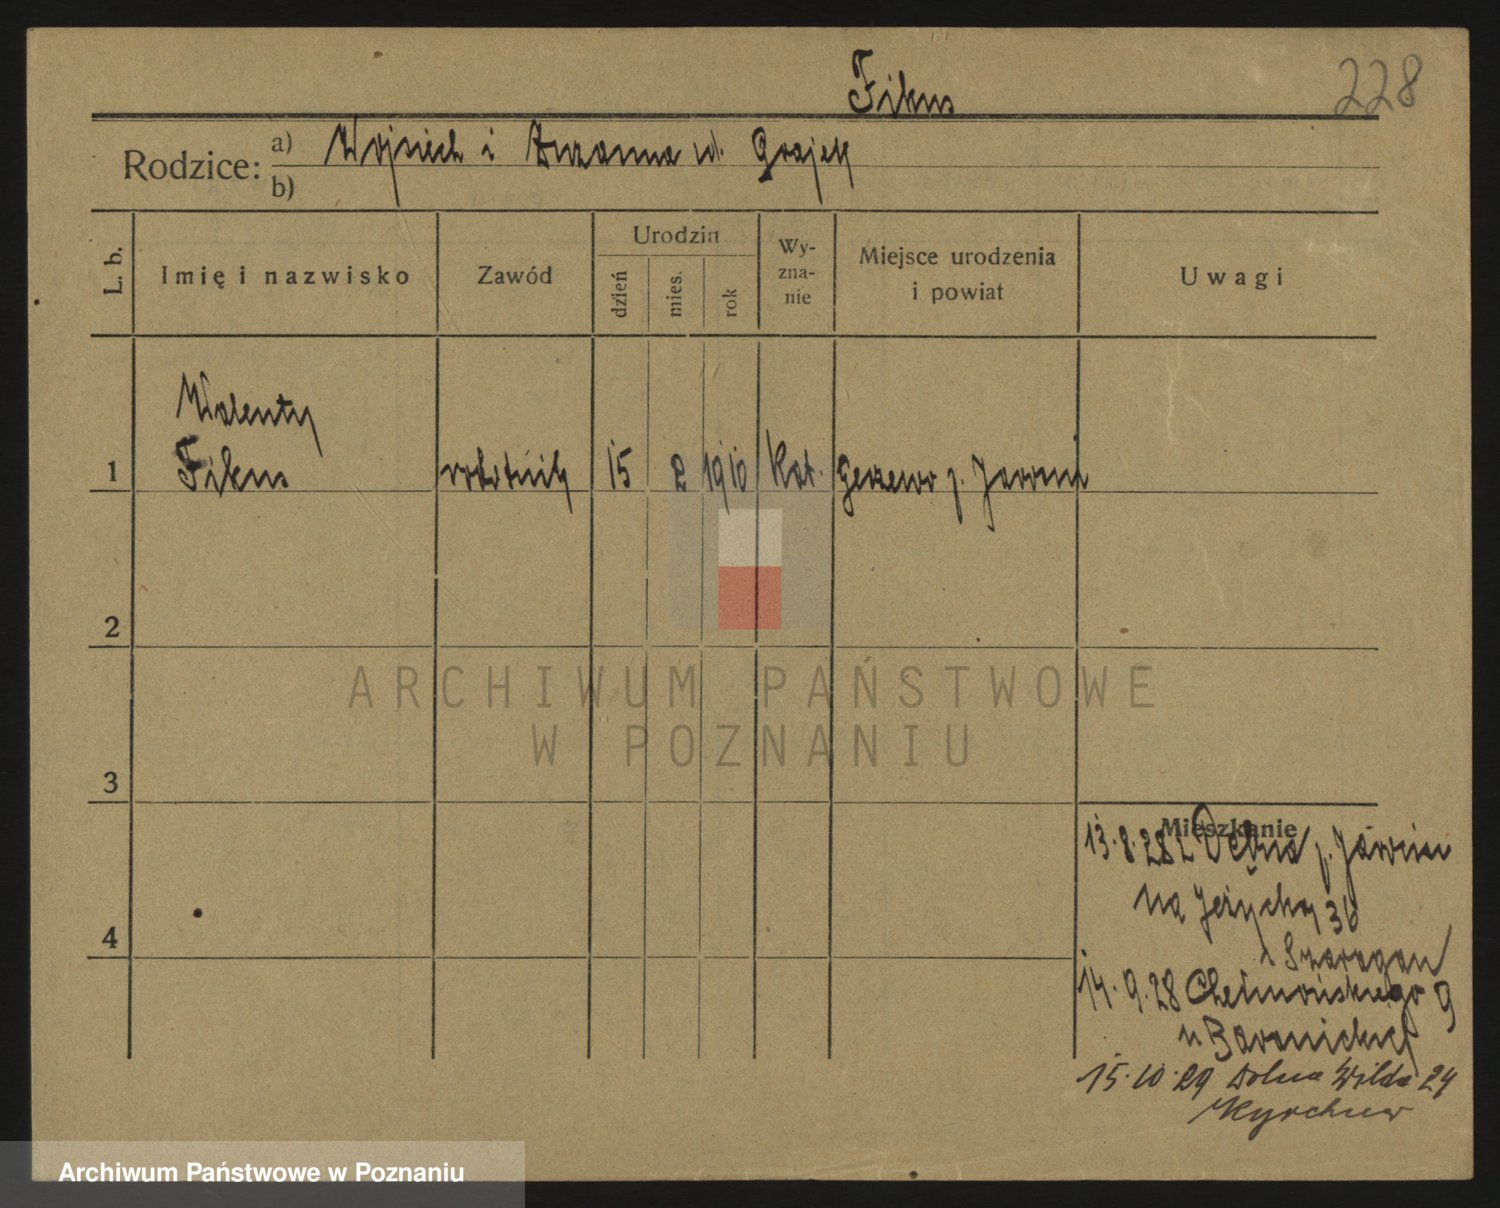 Fikus
228
Rodzice:
a) Wojciech i Zuzanna ur. Grajek
b)
L. b.
Imię i nazwisko
Zawód
Urodzin
dzień
mies.
rok
Wy-
zna-
nie
Miejsce urodzenia
i powiat
Uwagi
Walenty
1 Fikus robotnik 15 2 1910 kat. p. Jarocin
2
3
4
Mieszkanie
13.8.28 z p. Jarocin
na
14.9.28 Chełmońskiego 9
u
15.10.29 Dolna Wilda 24
ARCHIWUM PAŃSTWOWE
W POZNANIU
Archiwum Państwowe w Poznaniu